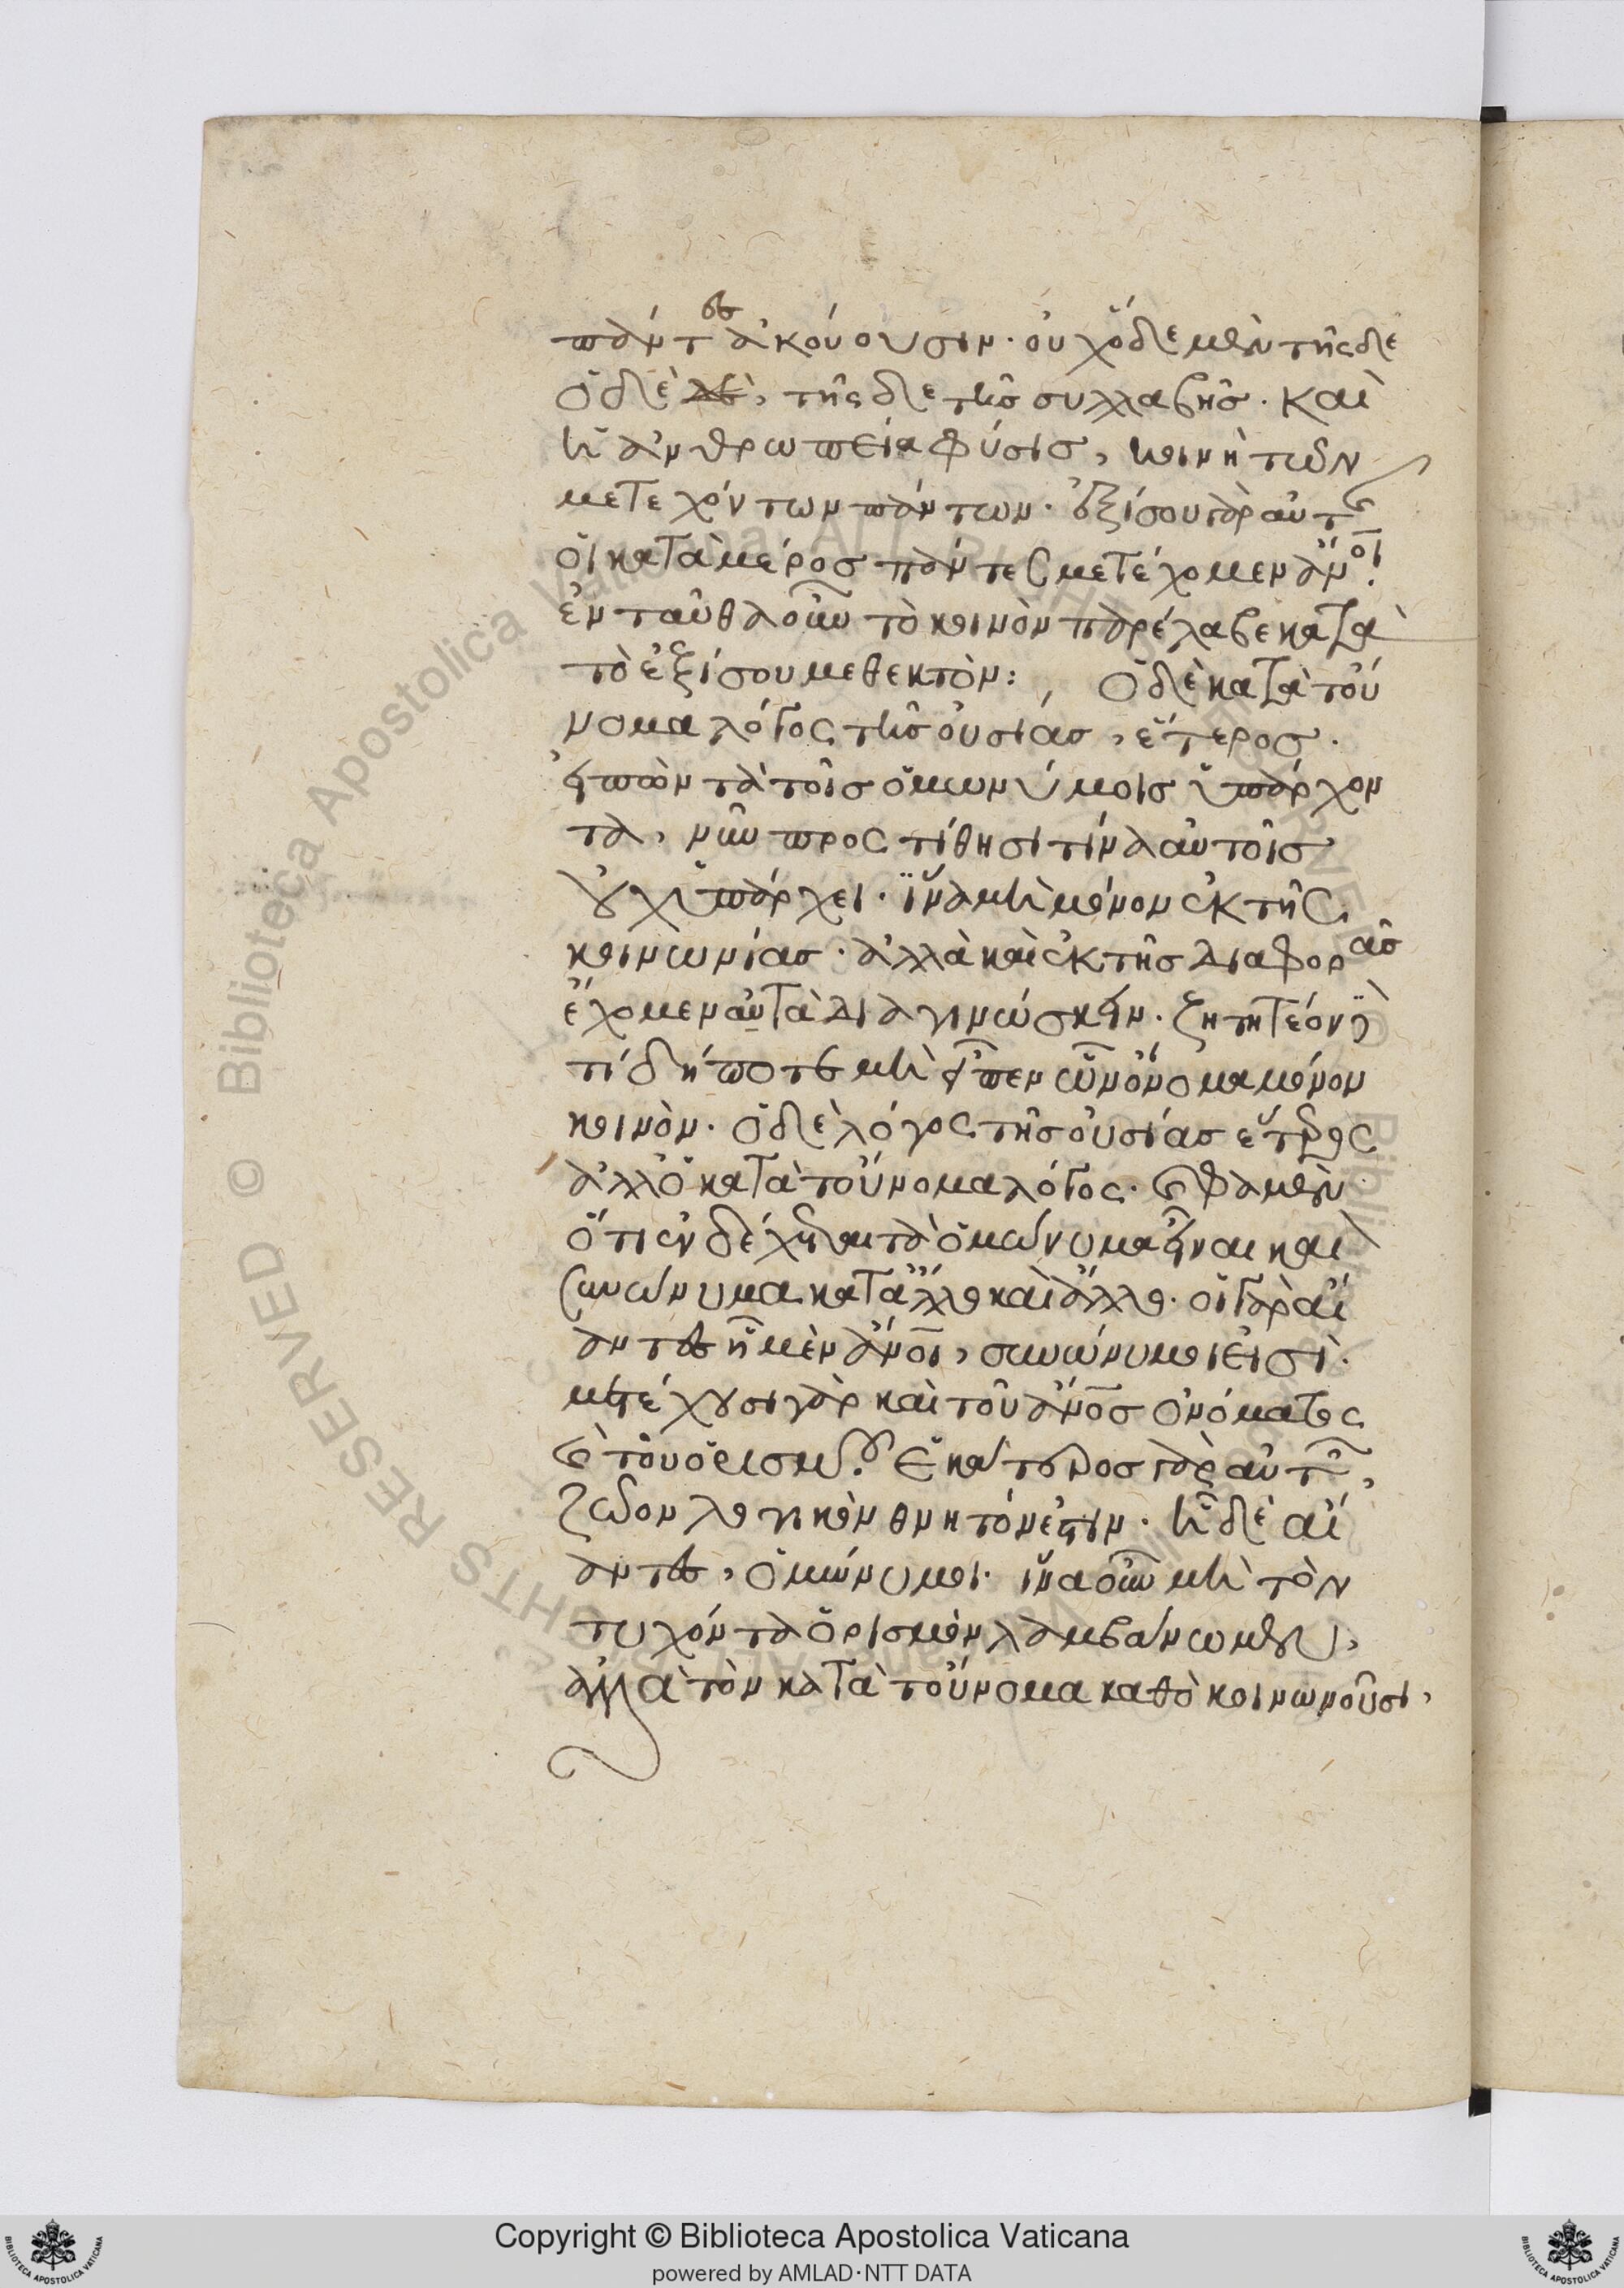 πάντες ἀκούουσιν· οὐχ ὅδε μὲν τῆσδε
ὁ δὲ τῆσδε τῆς συλλαβῆς. καὶ
ἡ ἀνθρωπεία φύσις, κοινὴ τῶν
μετεχόντων πάντων. ἐξίσου γὰρ αὐτῆς
οἱ κατὰ μέρος πάντες μετέχομεν ἄνοι.
ἐνταῦθα οὖν τὸ κοινὸν παρέλαβε κατὰ
τὸ ἐξίσου μεθεκτόν: Ὁ δὲ κατὰ τοὔ
νομα λόγος τῆς οὐσίας, ἕτερος.
εἰπὼν τὰ τοῖς ὁμωνύμοις ὑπάρχον
τα, νῦν προστίθησι τίνα αὐτοῖς
οὐχ ὑπάρχει. ἵνα μὴ μόνον ἐκ τῆς
κοινωνίας. ἀλλὰ καὶ ἐκ τῆς διαφορᾶς
ἔχομεν αὐτὰ διαγινώσκειν. ζητητέον
τί δήποτε μὴ εἶπεν ὧν ὄνομα μόνον
κοινὸν. ὁ δὲ λόγος τῆς οὐσίας ἕτερος
ἀλλ' ὁ κατὰ τοὔνομα λόγος. καὶ φαμὲν
ὅτι ἐνδέχεται τὰ ὁμώνυμα εἶναι καὶ
συνώνυμα κατ' ἄλλο καὶ ἄλλο. οἱ γὰρ αἴ
αντες ᾗ μὲν ἄνοι, συνώνυμοι εἰσὶ.
μετέχουσι γὰρ καὶ τοῦ ἄνος ὀνόματος
καὶ τοῦ ὁρισμοῦ. ἑκάτερος γὰρ αὐτῶν,
ζῶον λογικὸν θνητόν ἐστιν. ᾗ δὲ αἴ
αντες, ὁμώνυμοι. ἵνα οὖν μὴ τὸν
τυχόντα ὁρισμὸν λαμβάνωμεν,
ἀλλὰ τὸν κατὰ τοὔνομα καθὸ κοινωνοῦσι,
Copyright © Biblioteca Apostolica Vaticana
powered by AMLAD·NTT DATA